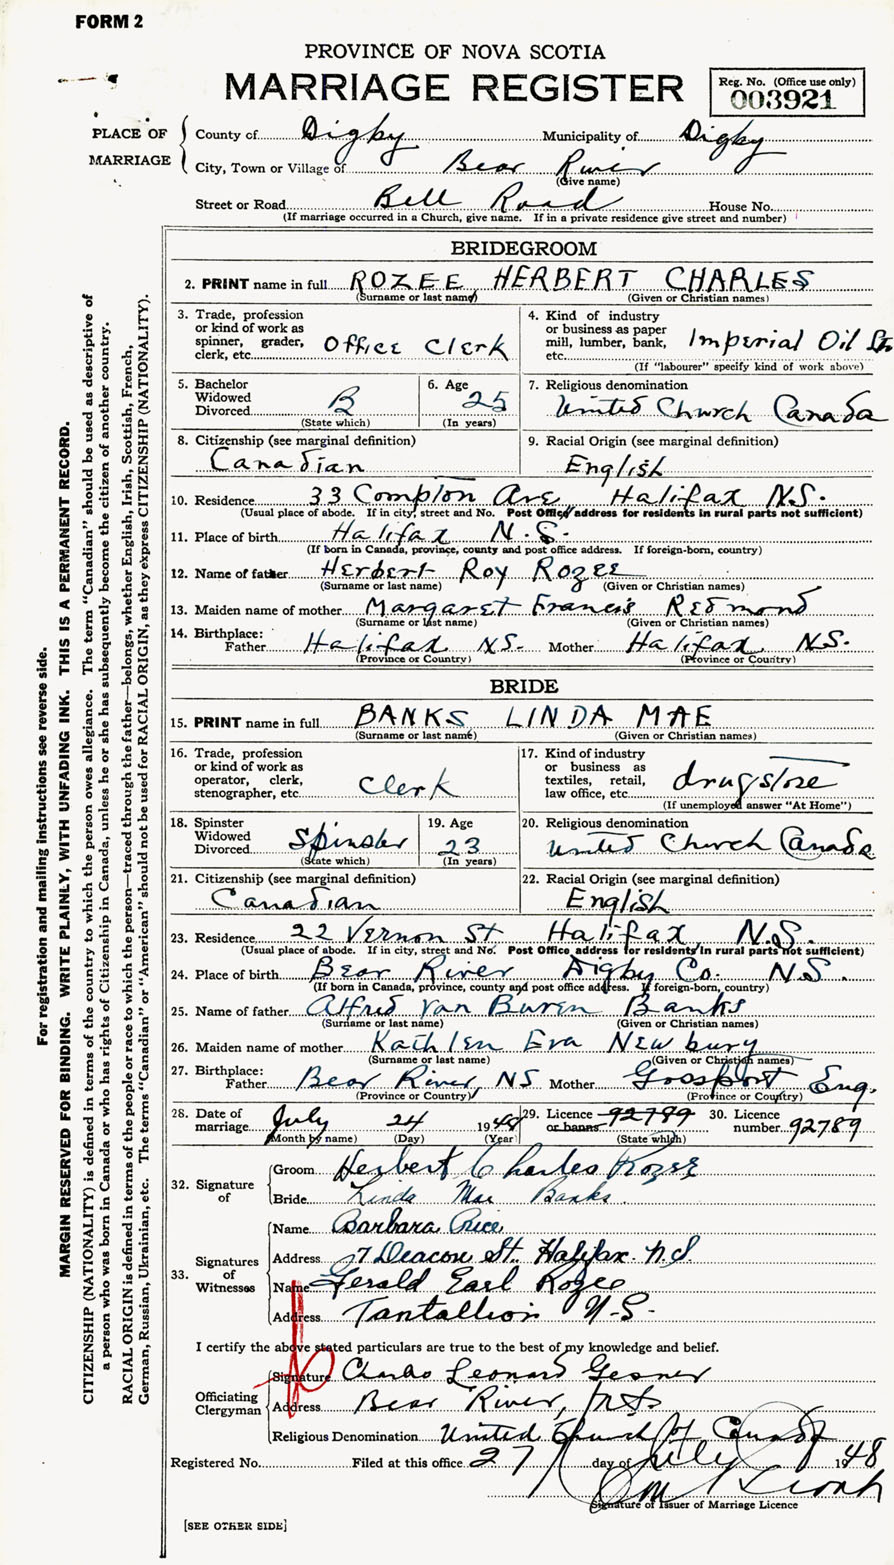 FORM 2
PROVINCE OF NOVA SCOTIA
MARRIAGE REGISTER
Reg. No. (Office use only)
003921
PLACE OF MARRIAGE
County of Digby Municipality of Digby
City, Town or Village of Bear River
(Give name)
Street or Road Bell Road House No.
(If marriage occurred in a Church, give name. If in a private residence give street and number)
BRIDEGROOM
2. PRINT name in full ROZEE HERBERT CHARLES
(Surname or last name) (Given or Christian names)
3. Trade, profession
or kind of work as
spinner, grader,
clerk, etc. Office Clerk
4. Kind of industry
or business as paper
mill, lumber, bank,
etc. Imperial Oil Ltd.
(If "labourer" specify kind of work above)
5. Bachelor
Widowed
Divorced B
(State which)
6. Age
25
(In years)
7. Religious denomination
United Church Canada
8. Citizenship (see marginal definition)
Canadian
9. Racial Origin (see marginal definition)
English
10. Residence 33 Compton Ave Halifax N.S.
(Usual place of abode. If in city, street and No. Post Office address for residents in rural parts not sufficient)
11. Place of birth Halifax N.S.
(If born in Canada, province, county and post office address. If foreign-born, country)
12. Name of father Herbert Roy Rozee
(Surname or last name) (Given or Christian names)
13. Maiden name of mother Margaret Francis Redmond
(Surname or last name) (Given or Christian names)
14. Birthplace:
Father Halifax NS. Mother Halifax NS.
(Province or Country) (Province or Country)
BRIDE
15. PRINT name in full BANKS LINDA MAE
(Surname or last name) (Given or Christian names)
16. Trade, profession
or kind of work as
operator, clerk,
stenographer, etc. Clerk
17. Kind of industry
or business as
textiles, retail,
law office, etc. drugstore
(If unemployed answer "At Home")
18. Spinster
Widowed
Divorced Spinster
(State which)
19. Age
23
(In years)
20. Religious denomination
United Church Canada
21. Citizenship (see marginal definition)
Canadian
22. Racial Origin (see marginal definition)
English
23. Residence 22 Vernon St Halifax N.S.
(Usual place of abode. If in city, street and No. Post Office address for residents in rural parts not sufficient)
24. Place of birth Bear River Digby Co. N.S.
(If born in Canada, province, county and post office address. If foreign-born, country)
25. Name of father Alfred Van Buren Banks
(Surname or last name) (Given or Christian names)
26. Maiden name of mother Kathlen Eva Newbury
(Surname or last name) (Given or Christian names)
27. Birthplace:
Father Bear River, NS Mother Gossport Eng.
(Province or Country) (Province or Country)
28. Date of
marriage July 24 1948
(Month by name) (Day) (Year)
29. Licence 92789
or banns
(State which)
30. Licence
number 92789
32. Signature of
Groom Herbert Charles Rozee
Bride Linda Mae Banks
33. Signatures of Witnesses
Name Barbara Price
Address 7 Deacon St. Halifax. N.S.
Name Gerald Earl Rozee
Address Tantallion N-S-
I certify the above stated particulars are true to the best of my knowledge and belief.
Officiating Clergyman
Signature Charles Leonard Gesner
Address Bear River, NS
Religious Denomination United Church of Canada
Registered No. Filed at this office 27 day of July 1948
Signature of Issuer of Marriage Licence
[SEE OTHER SIDE]
For registration and mailing instructions see reverse side.
MARGIN RESERVED FOR BINDING. WRITE PLAINLY, WITH UNFADING INK. THIS IS A PERMANENT RECORD.
CITIZENSHIP (NATIONALITY) is defined in terms of the country to which the person owes allegiance. The term "Canadian" should be used as descriptive of
a person who was born in Canada or who has rights of Citizenship in Canada, unless he or she has subsequently become the citizen of another country.
RACIAL ORIGIN is defined in terms of the people or race to which the person—traced through the father—belongs, whether English, Irish, Scottish, French,
German, Russian, Ukrainian, etc. The terms "Canadian" or "American" should not be used for RACIAL ORIGIN, as they express CITIZENSHIP (NATIONALITY).